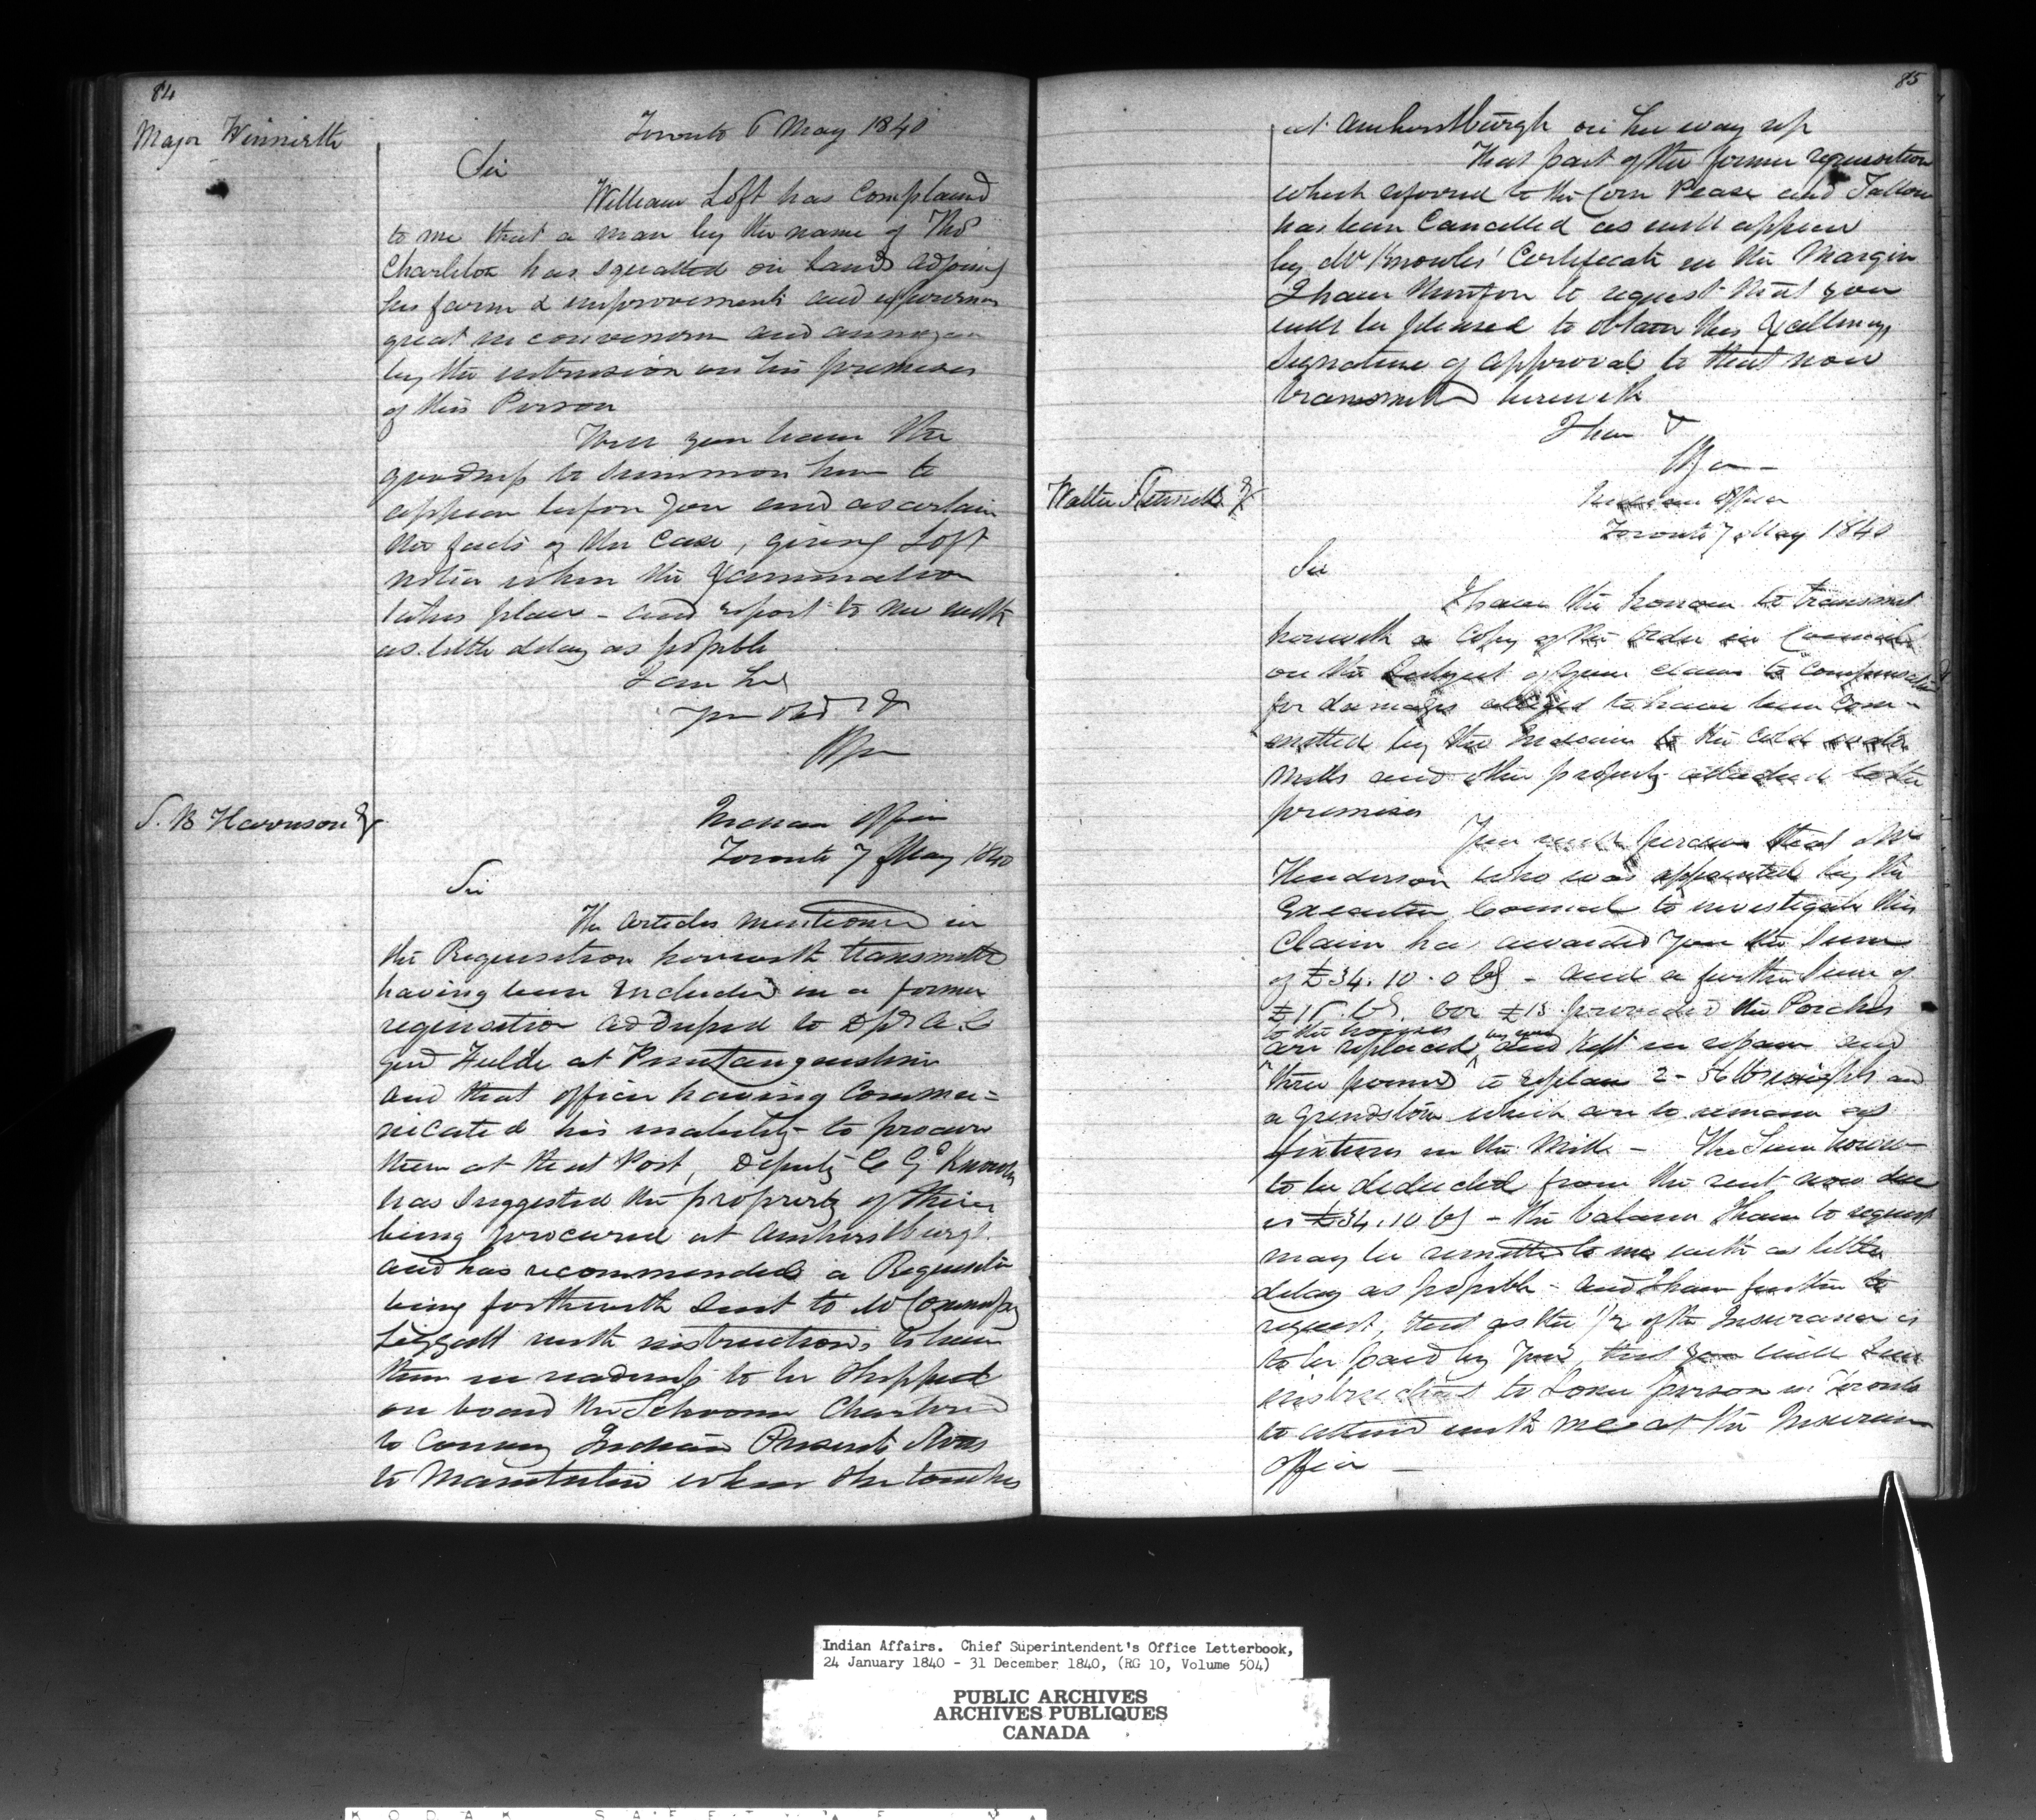 84
Major Winniett
Toronto 6 May 1840
Sir
William Loft has complained
to me that a man by the name of Thos
Charleton has squatted on Lands adjoining
his farm & improvements and experiences
great inconvenience and annoyance
by the intrusion on his premises
of this Person
Will you have the
goodness to summon him to
appear before you and ascertain
the facts of the Case, giving Loft
notice when the Examination
takes place - and report to me with
as little delay as possible
I am &c
your Obd
S. B Harrison Esqr
Indian Office
Toronto 7 May 1840
Sir
The articles mentioned in
the Requisition herewith transmitted
having been included in a former
requisition addressed to D A. C
Genl at Penetanguishine
and that officer having Commu=
nicated his inability to procure
them at that Post, Deputy C Gl Knowles
has suggested the propriety of their
being procured at Amherstburgh
and has recommended a Requisition
being forthwith sent to Mr Commissary
Leggatt with instructions to have
them in readiness to be shipped
on board the Schooner Chartered
to Convey Indian Present Stores
to Manitoulin when she touches
85
at Amherstburgh on her way up
That part of the former requisition
which referred to the Corn Pease and Tallow
has been Cancelled as will appear
by Mr Knowles' Certificate in the Margin
I have therefore to request that you
will be pleased to obtain His Excellency's
Signature of approval to that now
transmitted herewith
I have &
Walter Esqr
Indian Office
Toronto 7 May 1840
Sir
I have the honour to transmit
herewith a Copy of the Order in Council
on the Subject of your claim to compensation
for damages alleged to have been Com-
mitted by the Indians to the Cold water
Mills and other property attached to the
premises
You will perceive that Mr
Henderson who was appointed by the
Executive Council to investigate this
Claim has awarded you the Sum
of £34.10.0 - and a further Sum of
£15. or £18 provided the Porches
to the houses
are replaced, and kept in repair and
three pounds to replace 2 - 56 lb weights and
a grindstone which are to remain as
fixtures in the Mill - The Sum however
to be deducted from the rent now due
is £34.10 - the balance I have to request
may be remitted to me with as little
delay as possible - and I have further to
request, that as the 1/2 of the Insurance is
to be paid by you, that you will give
instructions to some person in Toronto
to attend with me at the Insurance
Office -
Indian Affairs. Chief Superintendent's Office Letterbook,
24 January 1840 - 31 December 1840, (RG 10, Volume 504)
PUBLIC ARCHIVES
ARCHIVES PUBLIQUES
CANADA